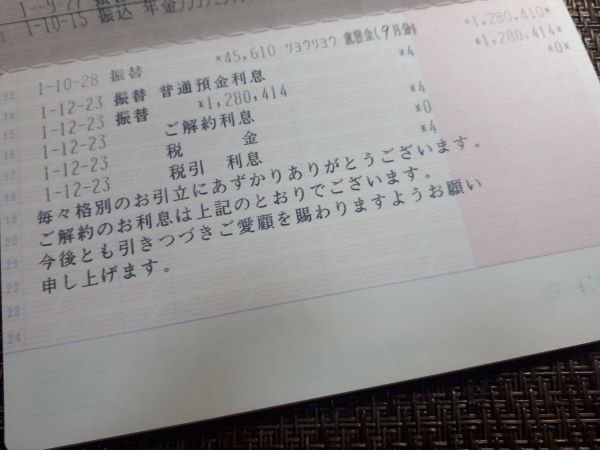 1--9-27 振替
1-10-15 振込 年金
13 1-10-28 振替 *45,610 リヨウリヨウ (9月分) *1,280,410*
14 1-12-23 振替 普通預金利息 *4 *1,280,414*
15 1-12-23 振替 *1,280,414 *0*
16 1-12-23 ご解約利息 *4
17 1-12-23 税 金 *0
18 1-12-23 税引 利息 *4
19 毎々格別のお引立にあずかりありがとうございます。
20 ご解約のお利息は上記のとおりでございます。
21 今後とも引きつづきご愛顧を賜わりますようお願い
22 申し上げます。
23
24